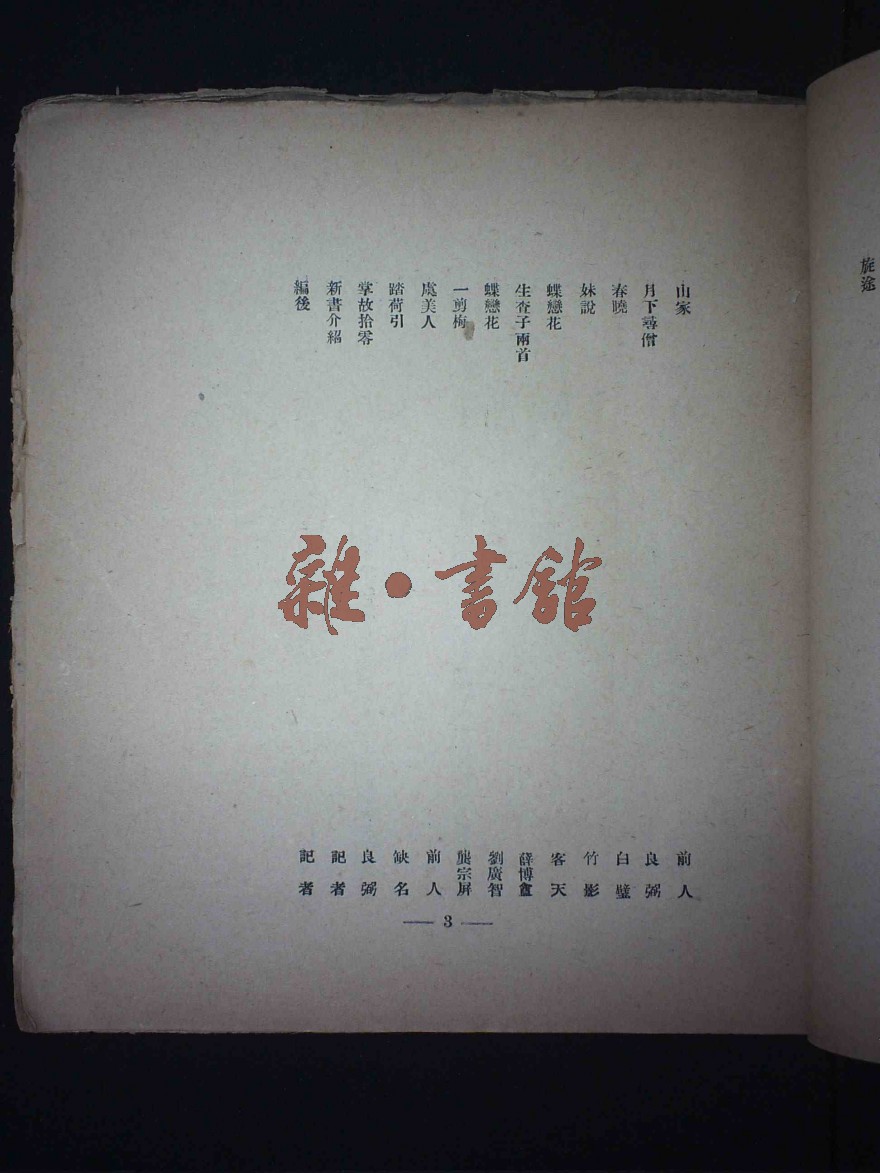 旋途
山家 前人
月下尋僧 良弼
春曉 白璧
妹說 竹影
蝶戀花 客天
生查子兩首 薛博盦
蝶戀花 劉廣智
一剪梅 龔宗屏
虞美人 前人
踏荷引 缺名
掌故拾零 良弼
新書介紹 記者
編後 記者
雜·書館
— 3 —